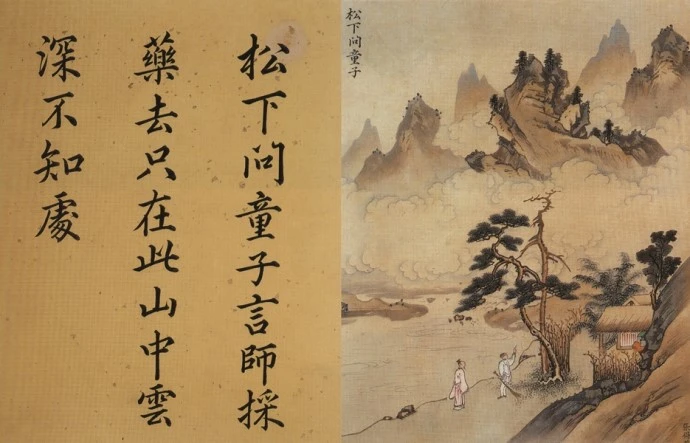 松下問童子言師採
藥去只在此山中雲
深不知處
松下问童子